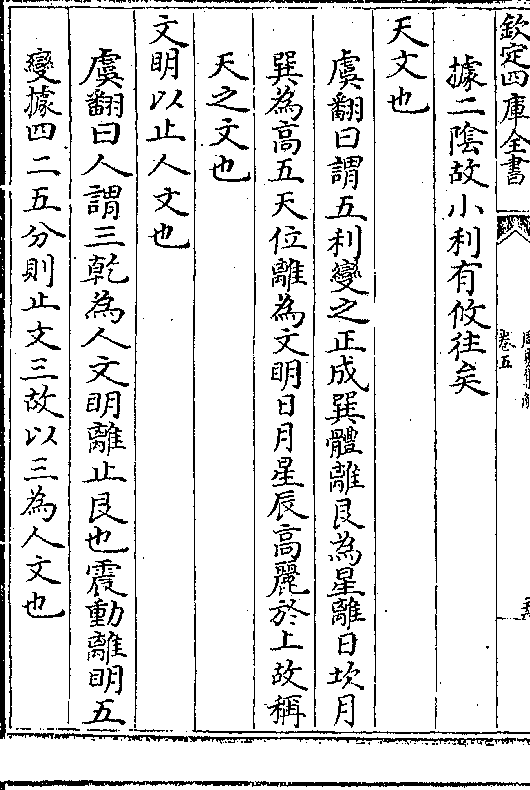 欽定四庫全書
卷五
據二陰故小利有攸往矣
天文也
虞翻曰謂五利變之正成巽體離艮為星離日坎月
巽為高五天位離為文明日月星辰高麗於上故稱
天之文也
文明以止人文也
虞翻曰人謂三乾為人文明離止艮也震動離明五
變據四二五分則止文三故以三為人文也